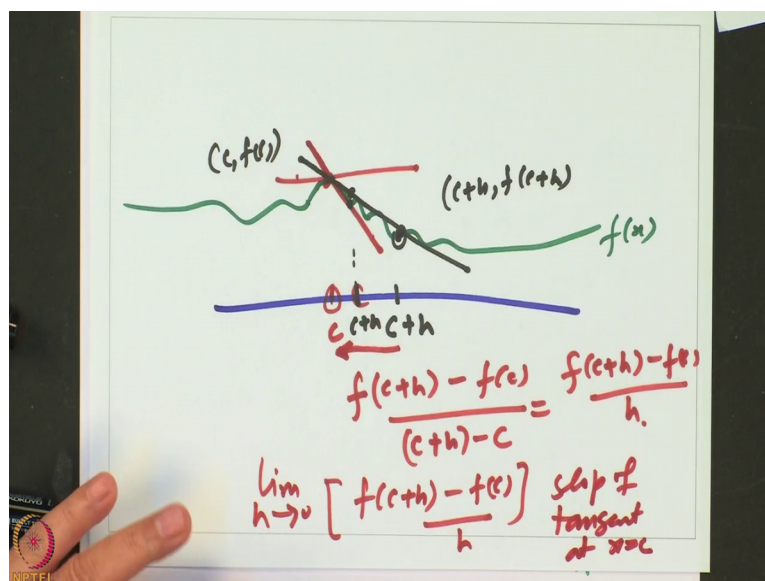 (c, f(c))
(c+h, f(c+h)
f(x)
c c+h c+h
f(c+h) - f(c) / (c+h) - c = f(c+h) - f(c) / h.
lim h→0 [ f(c+h) - f(c) / h ] slop of
tangent
at x=c
NPTEL